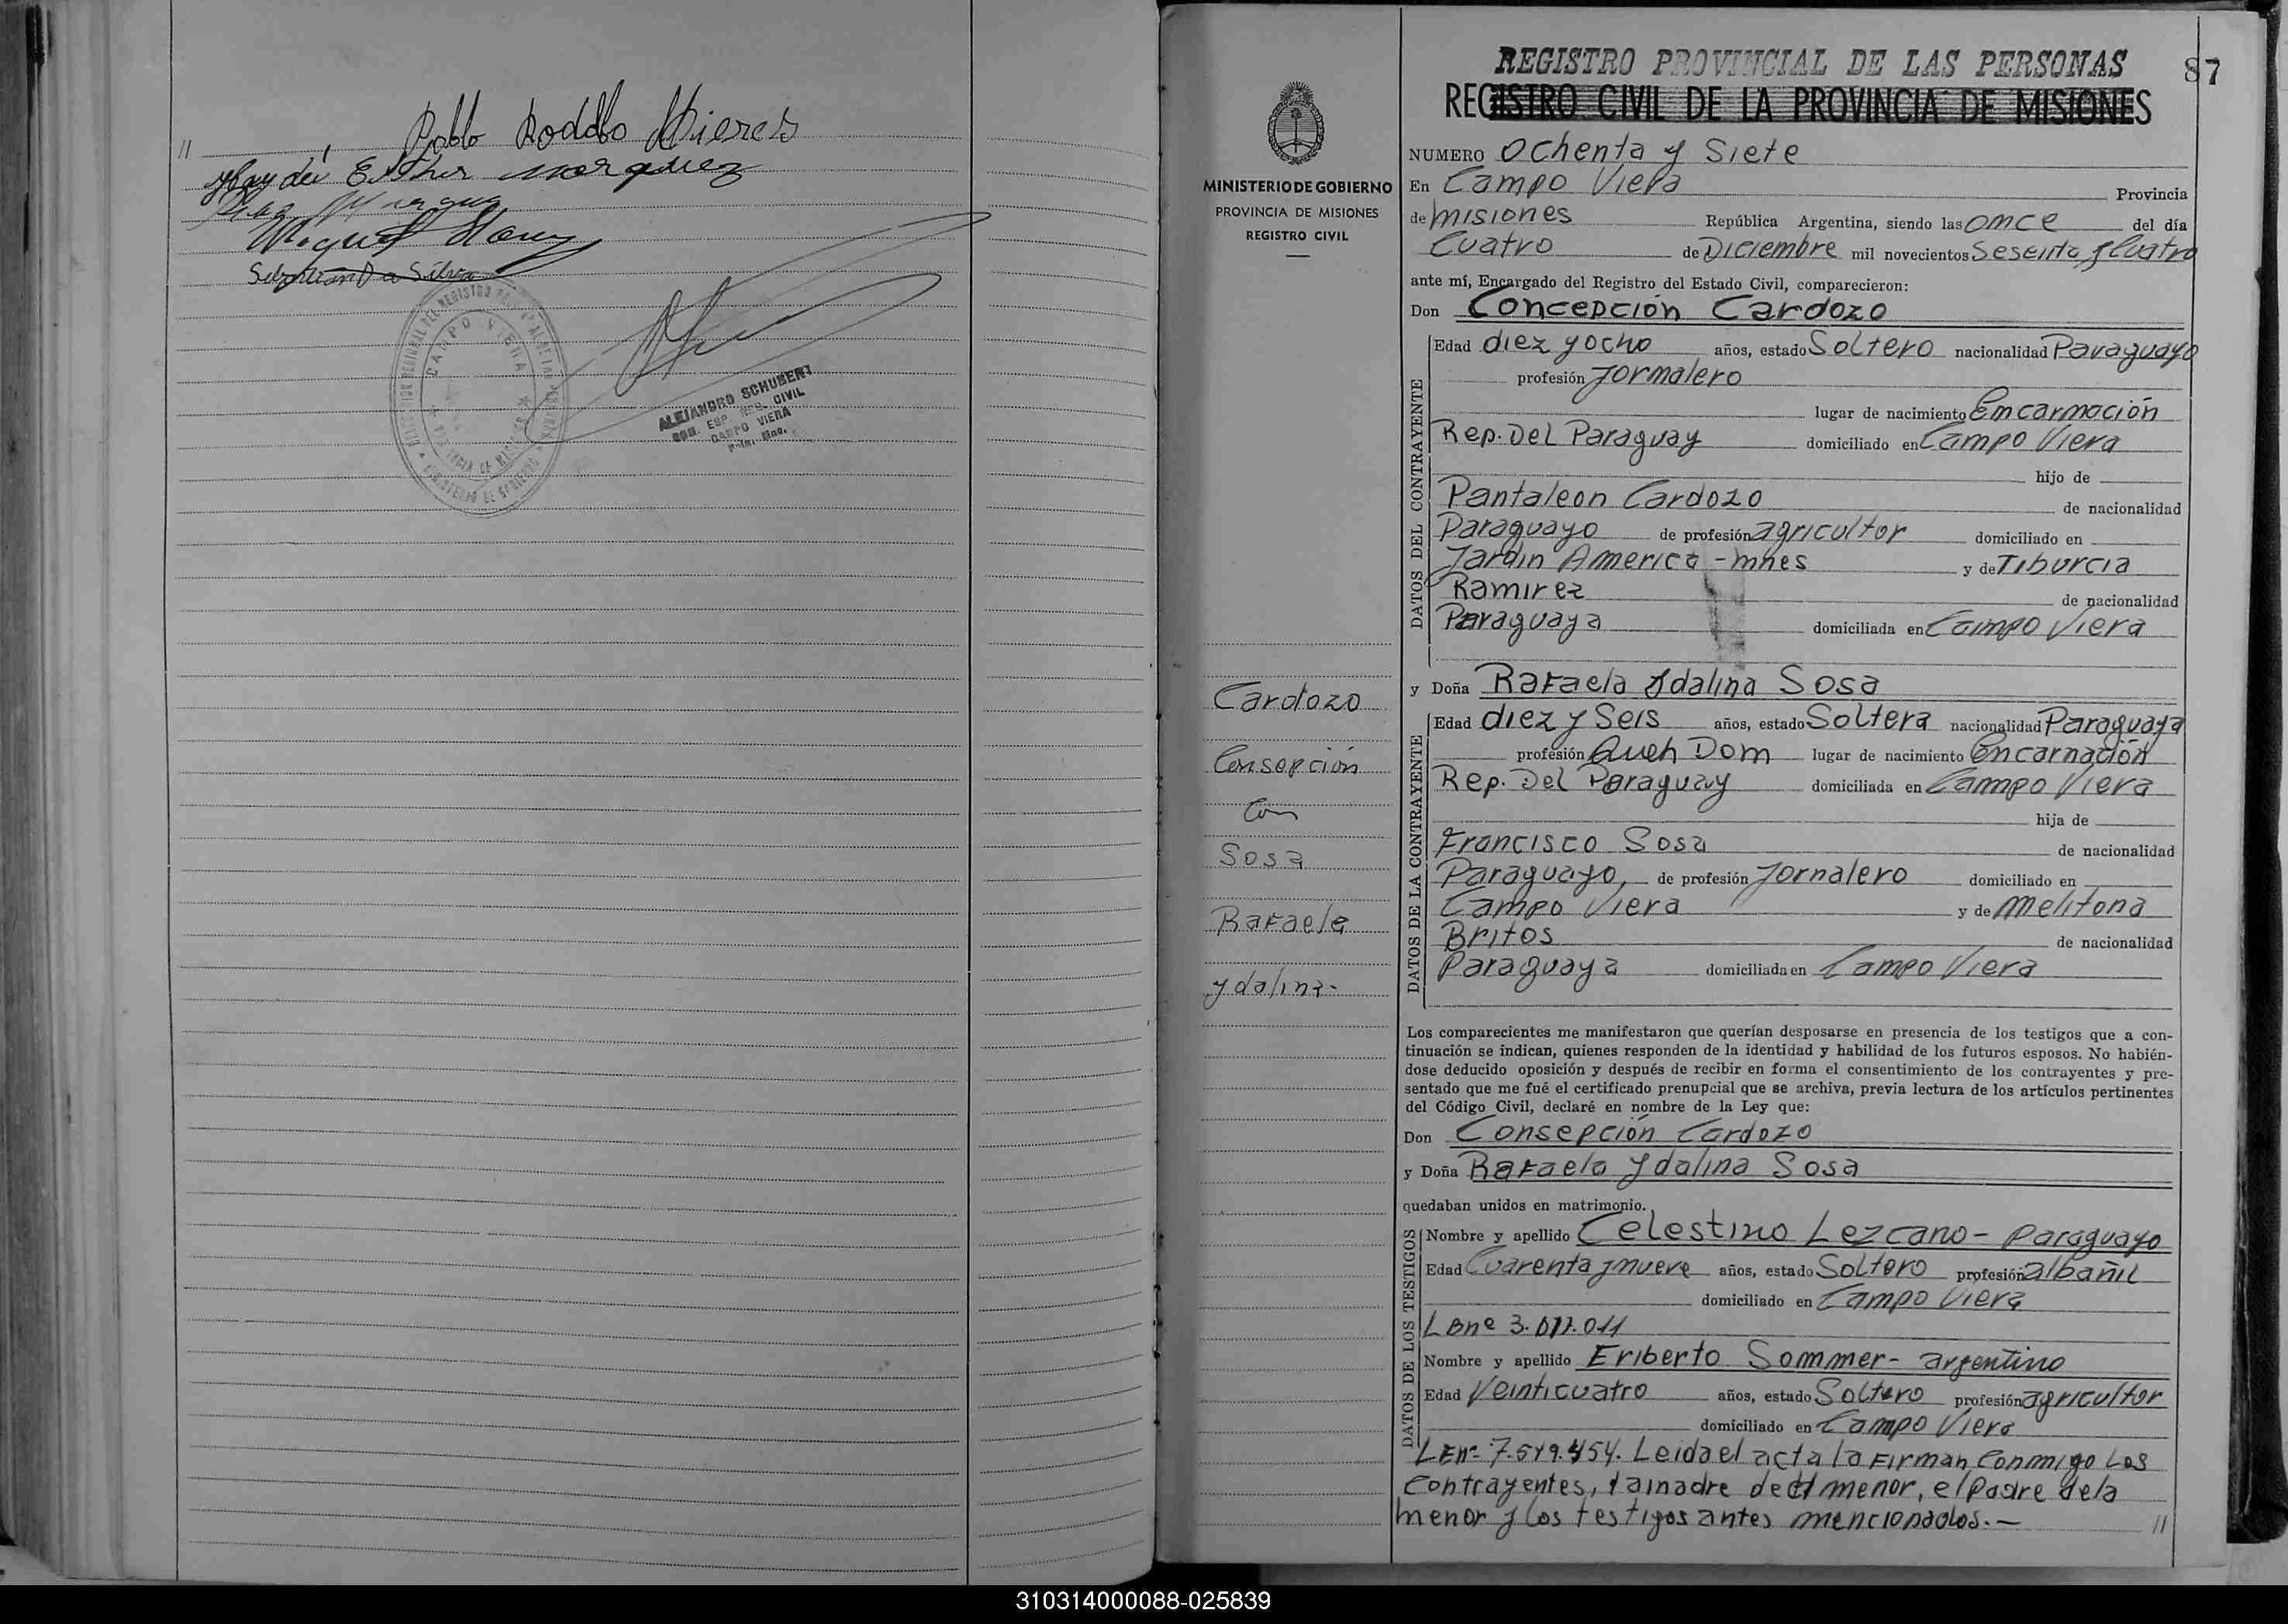 //
Pablo Rodolfo Mieres
Haydeé Esther Marquez
Miguel
Sebastian Da Silva
CAMPO VIERA
ALEJANDRO SCHUBERT
ENC. ESP. REG. CIVIL
CAMPO VIERA
REGISTRO PROVINCIAL DE LAS PERSONAS
87
REGISTRO CIVIL DE LA PROVINCIA DE MISIONES
MINISTERIO DE GOBIERNO
PROVINCIA DE MISIONES
REGISTRO CIVIL
Cardozo
Consepción
Con
Sosa
Rafaela
Ydalina-
NUMERO Ochenta y Siete
En Campo Viera Provincia
de Misiones República Argentina, siendo las once del día
Cuatro de Diciembre mil novecientos Sesenta y Cuatro
ante mí, Encargado del Registro del Estado Civil, comparecieron:
Don Concepción Cardozo
DATOS DEL CONTRAYENTE
Edad diez y ocho años, estado Soltero nacionalidad Paraguayo
profesión Jornalero
lugar de nacimiento Encarnación
Rep. Del Paraguay domiciliado en Campo Viera
hijo de
Pantaleon Cardozo de nacionalidad
Paraguayo de profesión agricultor domiciliado en
Jardin America - mnes y de Tiburcia
Ramirez de nacionalidad
Paraguaya domiciliada en Campo Viera
y Doña Rafaela Ydalina Sosa
DATOS DE LA CONTRAYENTE
Edad diez y Seis años, estado Soltera nacionalidad Paraguaya
profesión Queh Dom lugar de nacimiento Encarnación
Rep. Del Paraguay domiciliada en Campo Viera
hija de
Francisco Sosa de nacionalidad
Paraguayo, de profesión Jornalero domiciliado en
Campo Viera y de Melitona
Britos de nacionalidad
Paraguaya domiciliada en Campo Viera
Los comparecientes me manifestaron que querían desposarse en presencia de los testigos que a con-
tinuación se indican, quienes responden de la identidad y habilidad de los futuros esposos. No habién-
dose deducido oposición y después de recibir en forma el consentimiento de los contrayentes y pre-
sentado que me fué el certificado prenupcial que se archiva, previa lectura de los artículos pertinentes
del Código Civil, declaré en nombre de la Ley que:
Don Consepción Cardozo
y Doña Rafaela Ydalina Sosa
quedaban unidos en matrimonio.
DATOS DE LOS TESTIGOS
Nombre y apellido Celestino Lezcano - Paraguayo
Edad Cuarenta y nueve años, estado Soltero profesión albañil
domiciliado en Campo Viera
Nombre y apellido Eriberto Sommer - argentino
Edad Veinticuatro años, estado Soltero profesión agricultor
domiciliado en Campo Viera
Leida el acta la Firman Conmigo Los
Contrayentes, la madre del menor, el Padre de la
menor y los testigos antes mencionados.- //
310314000088-025839